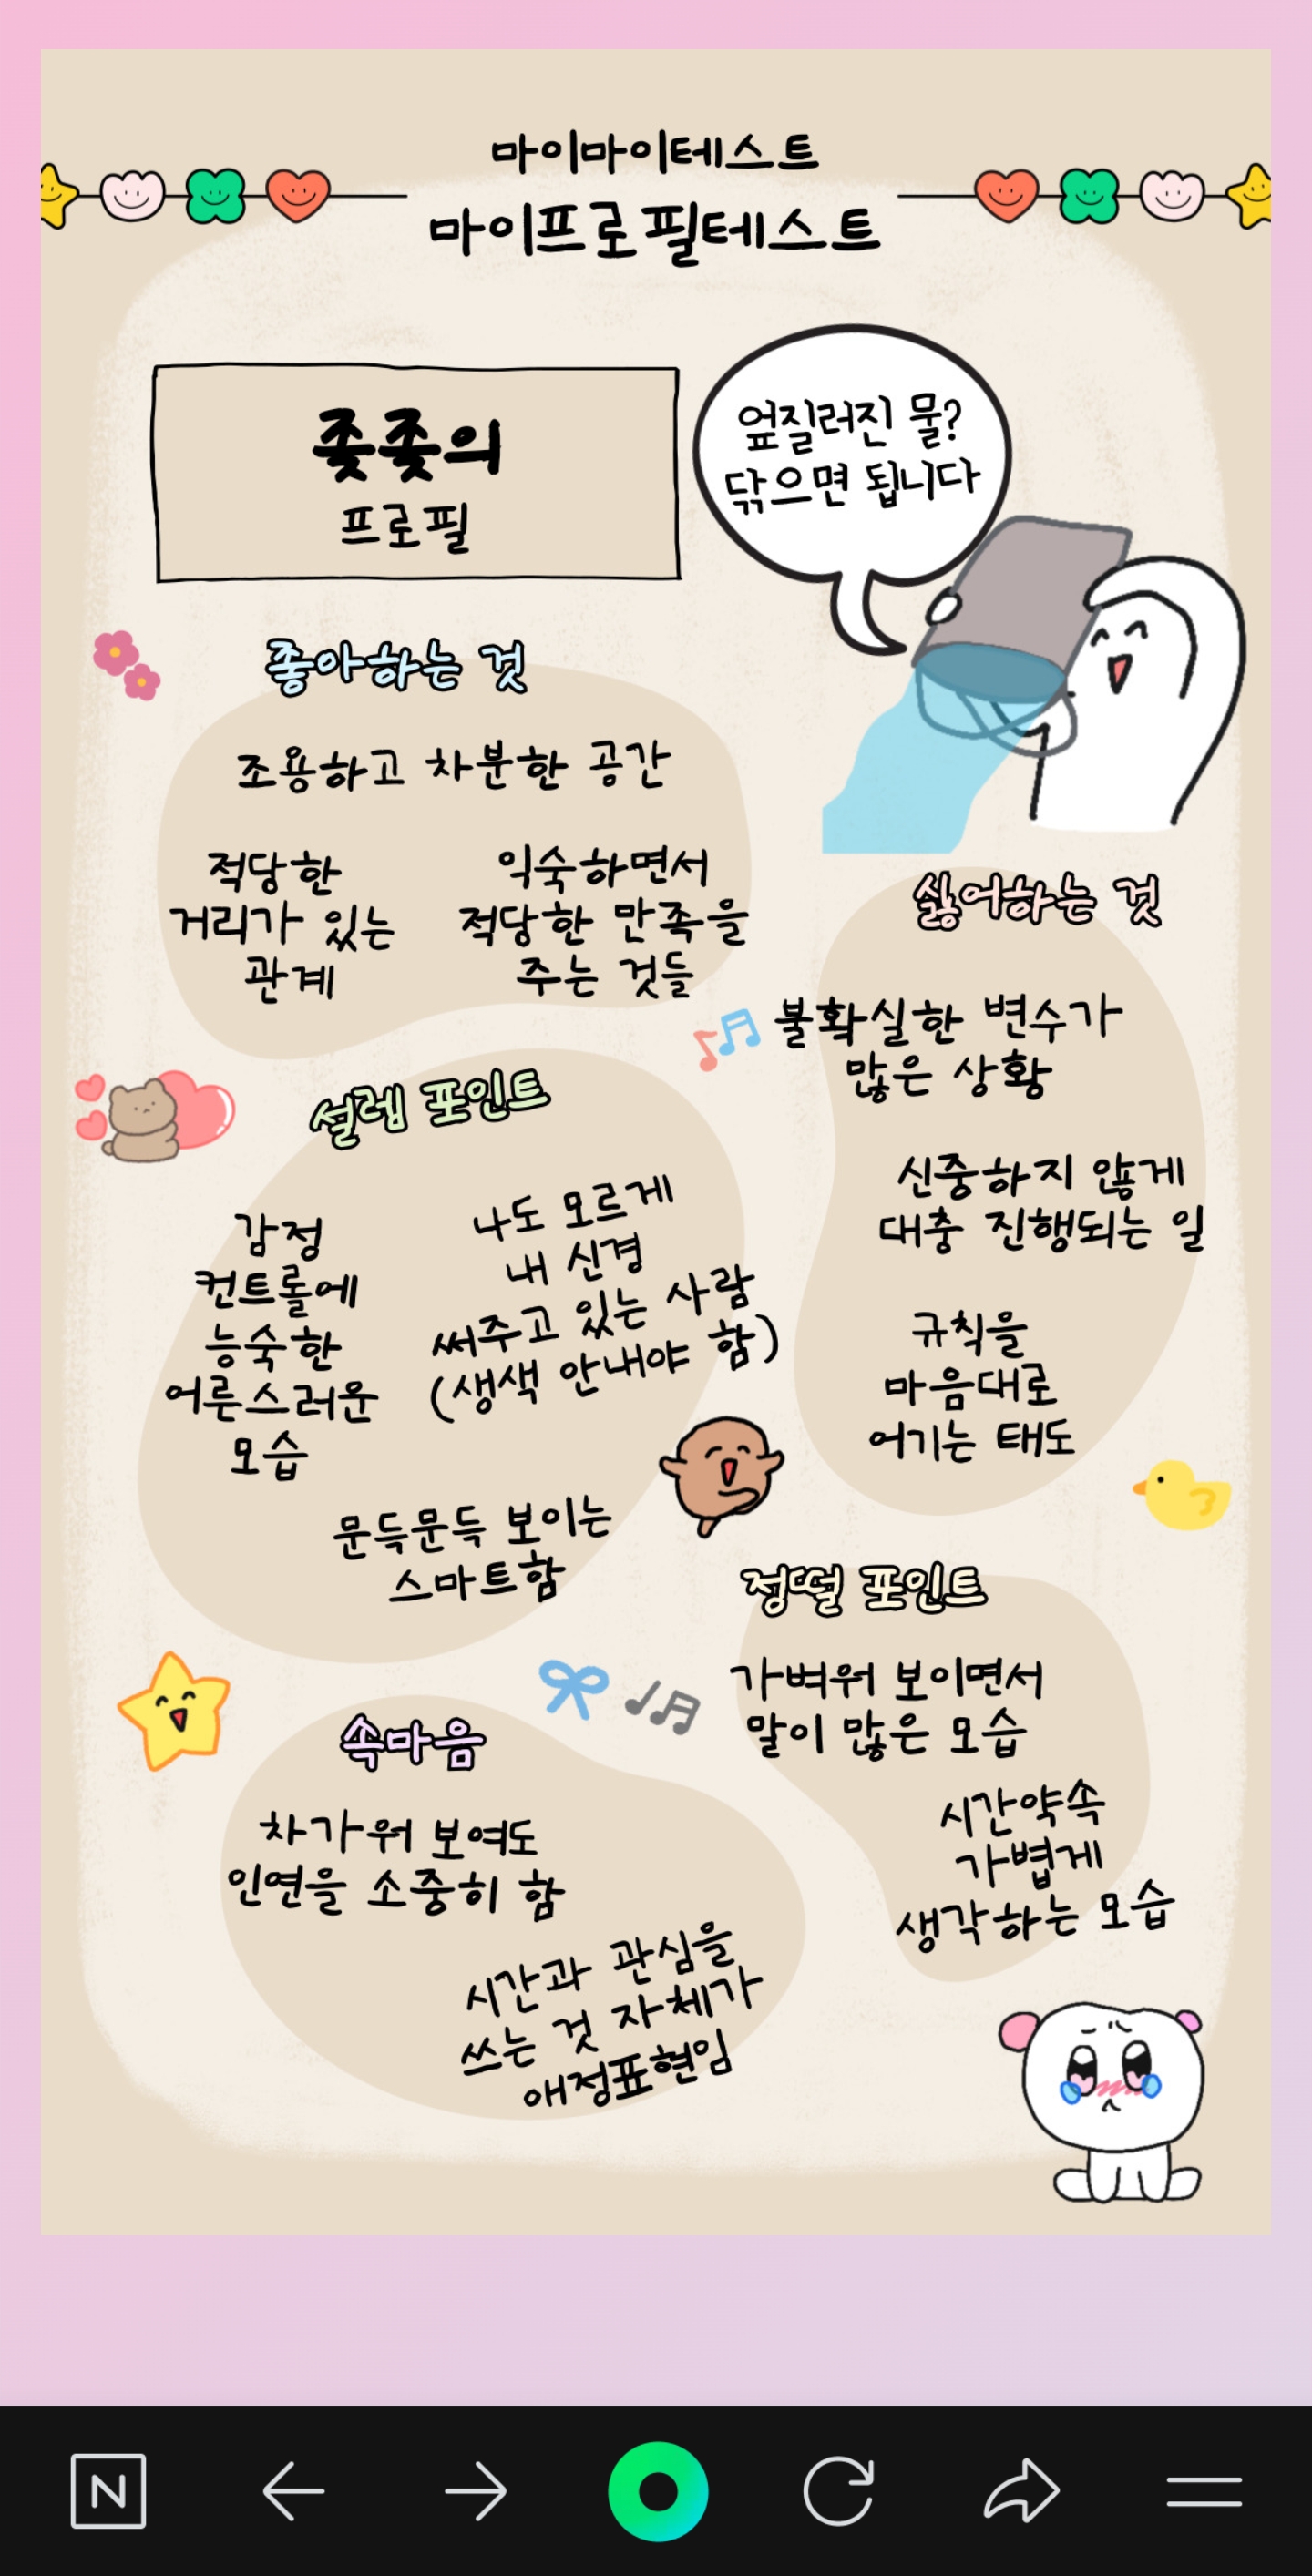 마이마이테스트
마이프로필테스트
좆좆의
프로필
엎질러진 물?
닦으면 됩니다
좋아하는 것
조용하고 차분한 공간
적당한
거리가 있는
관계
익숙하면서
적당한 만족을
주는 것들
싫어하는 것
불확실한 변수가
많은 상황
신중하지 않게
대충 진행되는 일
규칙을
마음대로
어기는 태도
설렘 포인트
감정
컨트롤에
능숙한
어른스러운
모습
나도 모르게
내 신경
써주고 있는 사람
(생색 안내야 함)
문득문득 보이는
스마트함
정떨 포인트
가벼워 보이면서
말이 많은 모습
시간약속
가볍게
생각하는 모습
속마음
차가워 보여도
인연을 소중히 함
시간과 관심을
쓰는 것 자체가
애정표현임
N